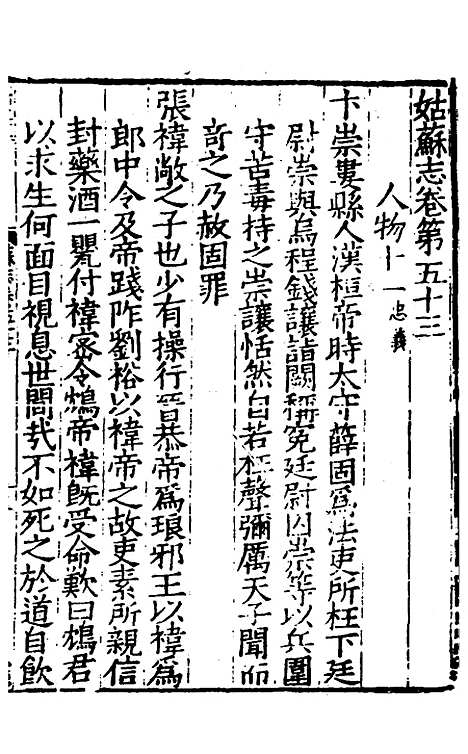 姑蘇志卷第五十三
人物十一忠義
卞崇婁縣人漢桓帝時太守薛固爲法吏所枉下廷
尉崇與烏程錢讓詣闕稱冤廷尉囚崇等以兵圍
守苦毒持之崇讓恬然自若枉聲彌厲天子聞而
奇之乃赦固罪
張禕敞之子也少有操行晉恭帝爲琅邪王以禕爲
郎中令及帝踐阼劉裕以禕帝之故吏素所親信
封藥酒一甖付禕密令鴆帝禕旣受命歎曰鴆君
以求生何面目視息世間㢤不如死之於道自飲